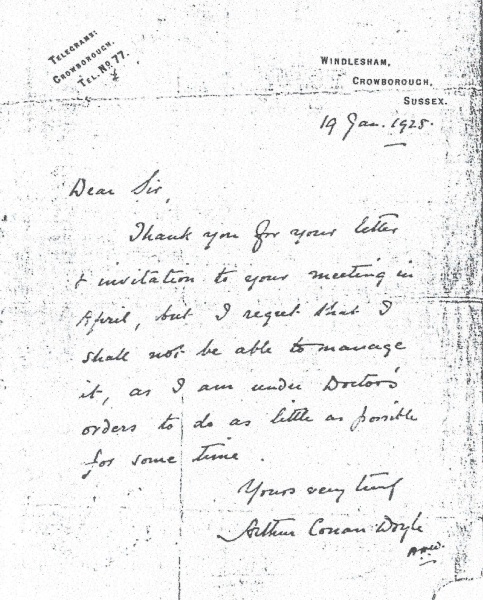 TELEGRAMS:
CROWBOROUGH.
TEL. NO 77.
WINDLESHAM,
CROWBOROUGH,
SUSSEX.
19 Jan. 1925.
Dear Sir,
Thank you for your letter
& invitation to your meeting in
April, but I regret that I
shall not be able to manage
it, as I am under Doctor's
orders to do as little as possible
for some time.
Yours very truly
Arthur Conan Doyle